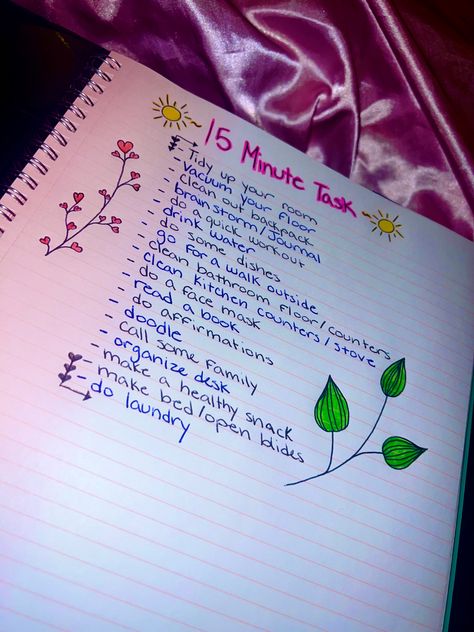 15 Minute Task
- Tidy up your room
- vacuum your floor
- clean out backpack
- brainstorm/Journal
- do a quick workout
- drink water
- do some dishes
- go for a walk outside
- clean bathroom floor/counters
- clean kitchen counters/stove
- do a face mask
- read a book
- do affirmations
- doodle
- call some family
- organize desk
- make a healthy snack
- make bed/open blides
- do laundry